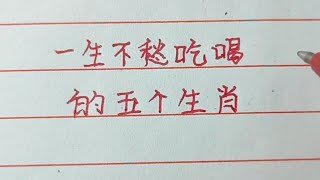 一生不愁吃喝
的五个生肖